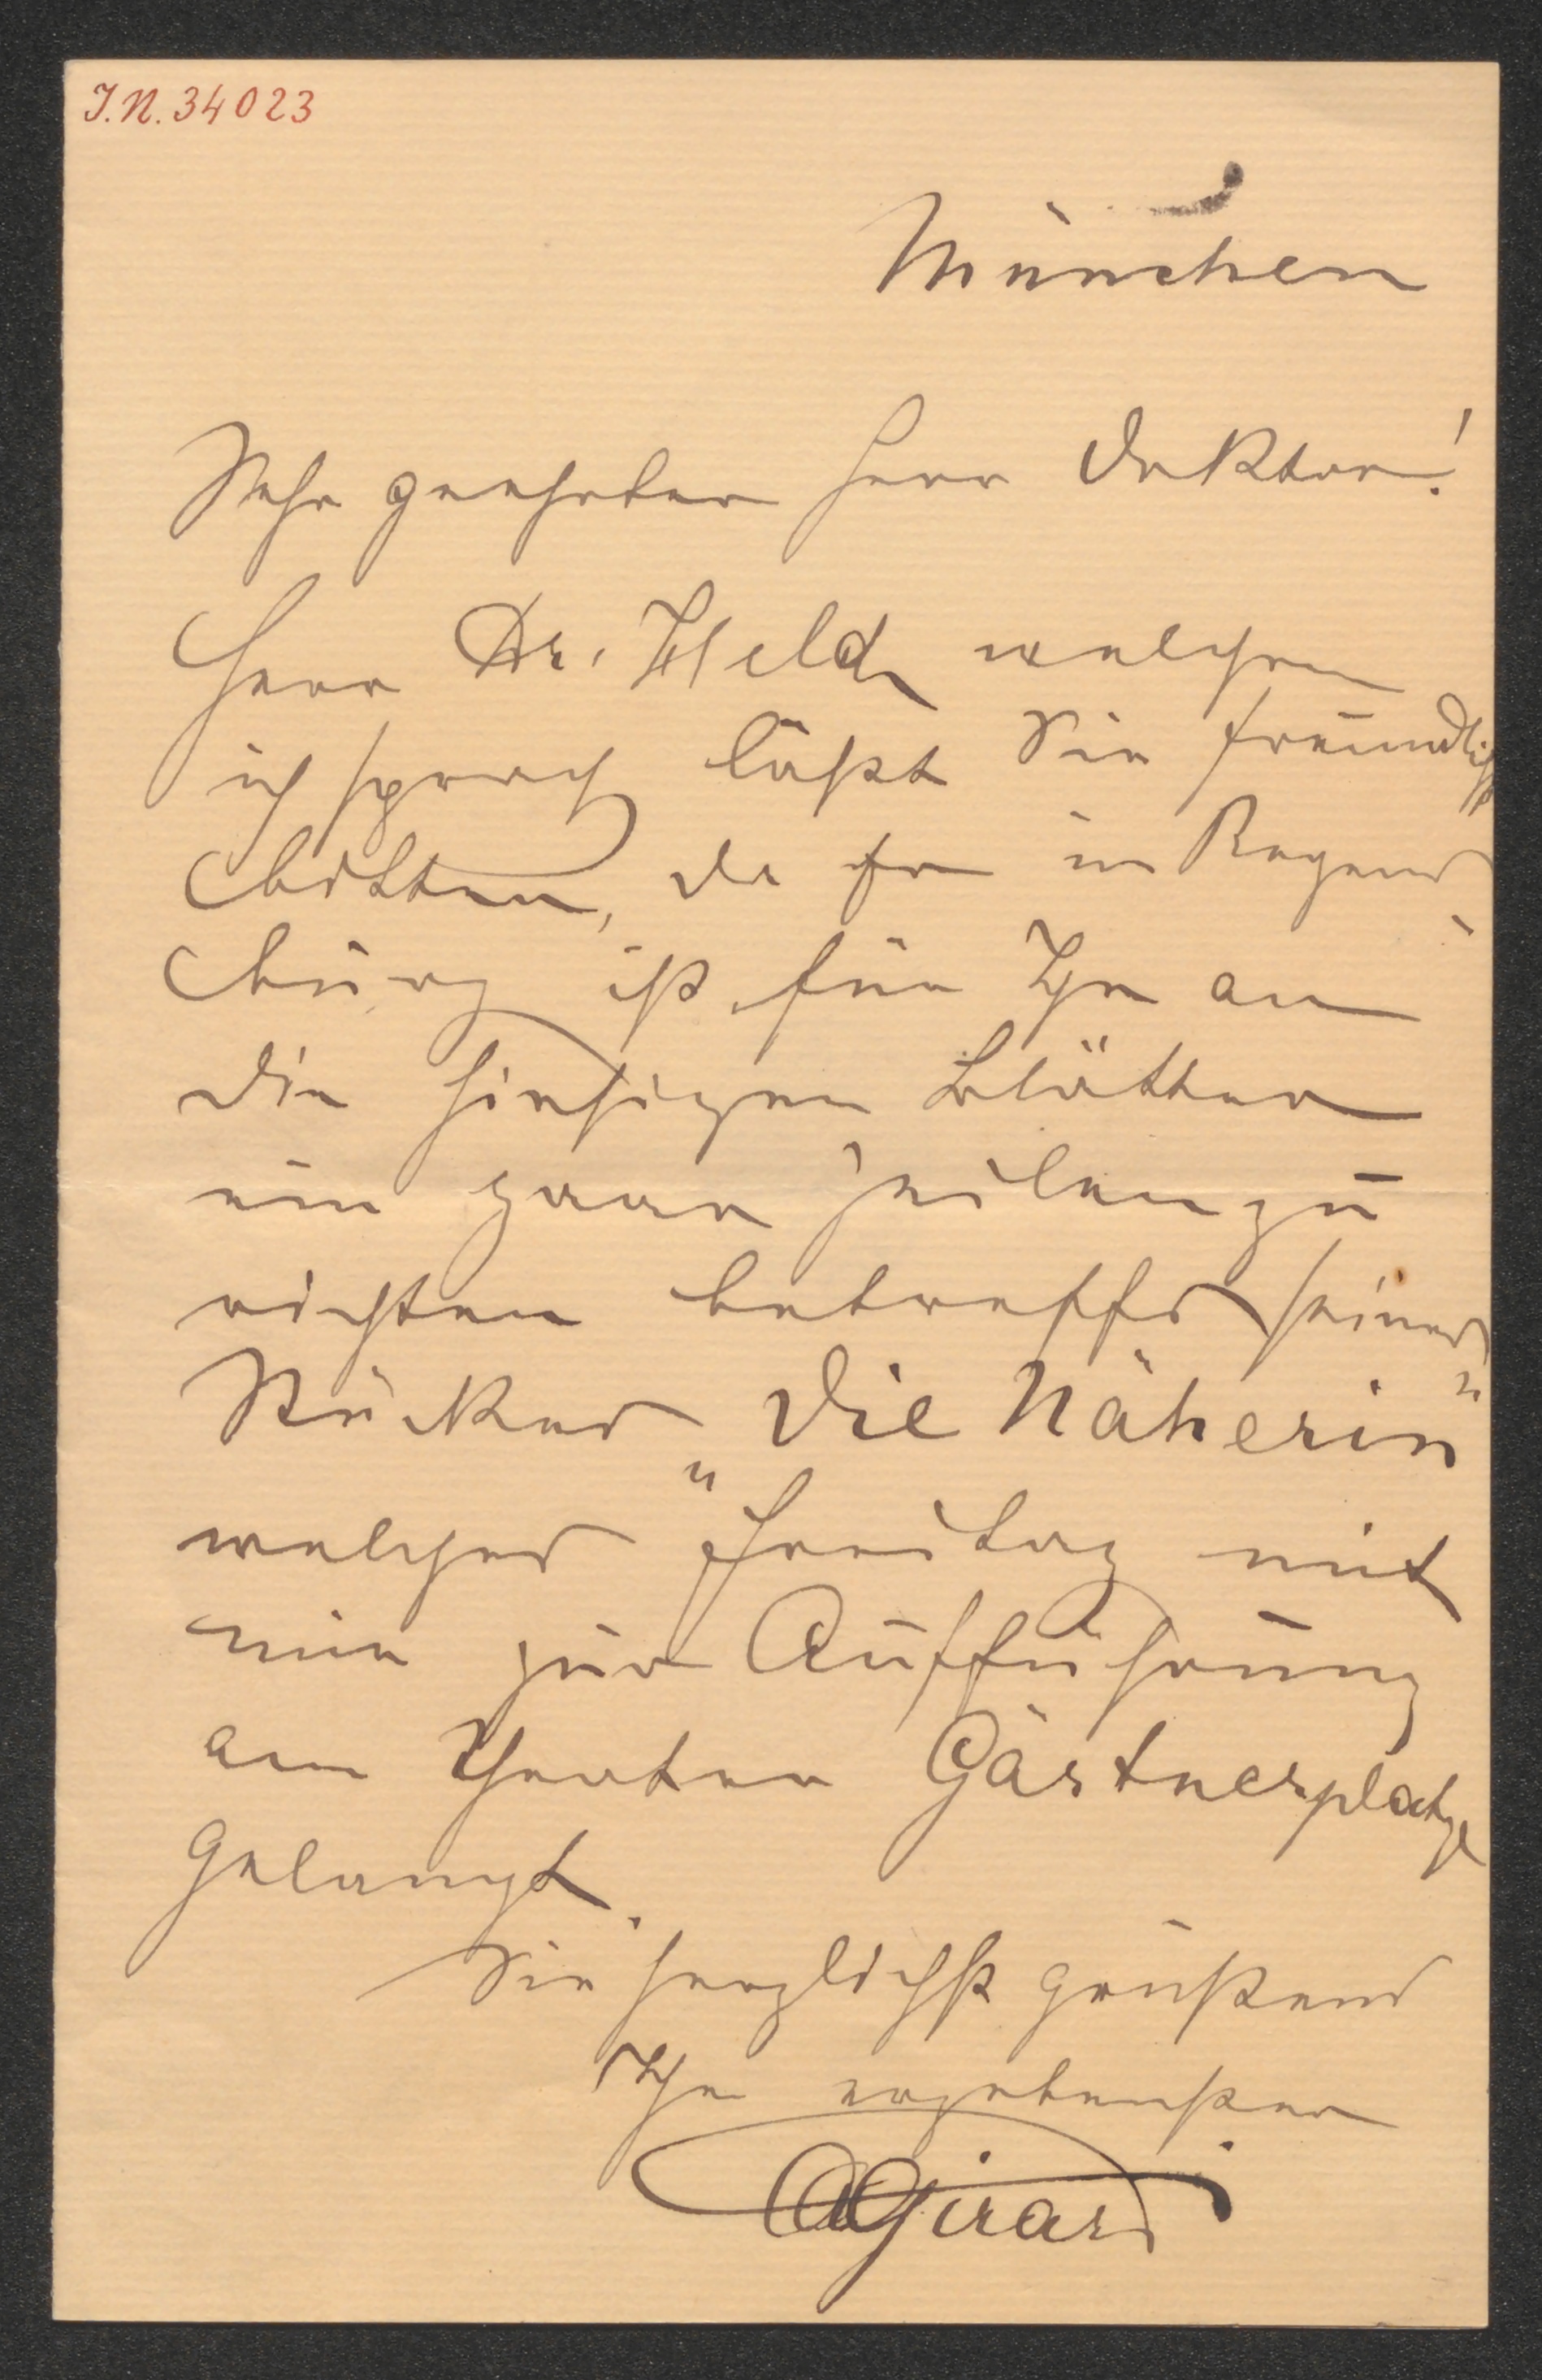 J.N. 34023
München
Sehr geehrter Herr Doktor!
Herr Dr. Held welchen
ich sprach läßt Sie freundlichst
bitten, da er in Regens
burg ist, für Ihn an
die hiesigen Blätter
ein paar Zeilen zu
richten betreffs seines
Stückes „Die Näherin"
welches Freitag mit
mir zur Aufführung
am Theater Gärtnerplatze
gelangt.
Sie herzlichst grüßend
Ihr ergebenster
AGirardi